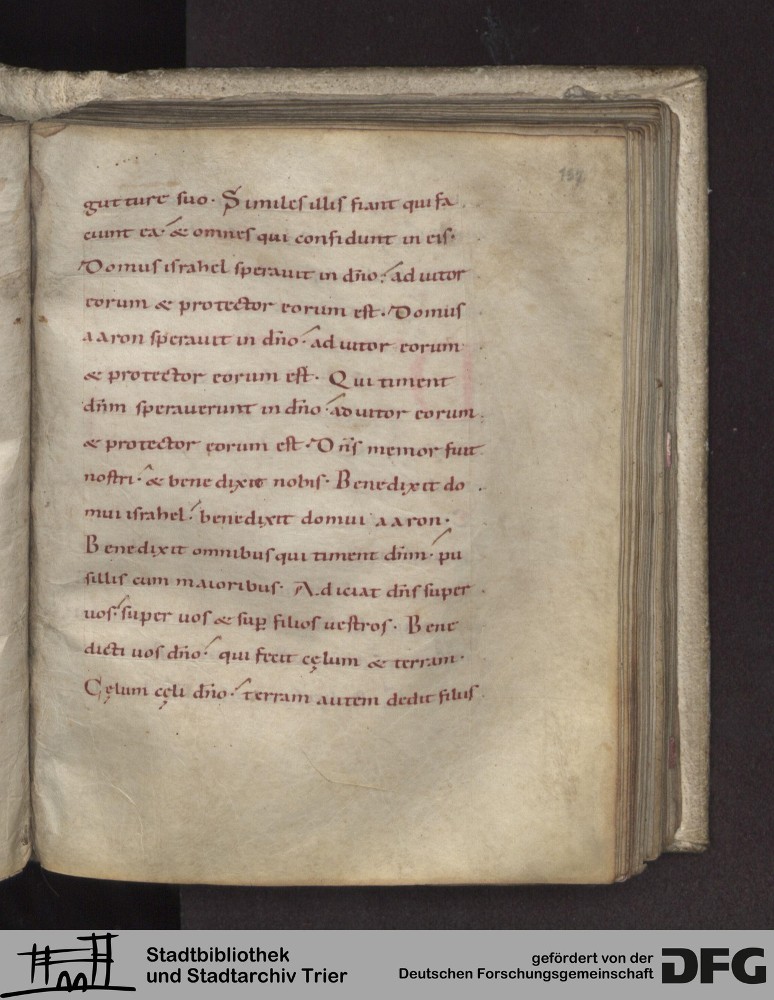 gutture suo· Similes illis fiant qui fa
ciunt ea· & omnes qui confidunt in eis·
Domus israhel sperauit in dn̄o· adiutor
eorum & protector eorum est· Domus
aaron sperauit in dn̄o· adiutor eorum
& protector eorum est· Qui timent
dn̄m sperauerunt in dn̄o· adiutor eorum
& protector eorum est· Dn̄s memor fuit
nostri· & benedixit nobis· Benedixit do
mui israhel· benedixit domui aaron·
Benedixit omnibus qui timent dn̄m· pu
sillis cum maioribus· Adiciat dn̄s super
uos· super uos & sup̄ filios uestros· Bene
dicti uos dn̄o· qui fecit cęlum & terram·
Cęlum cęli dn̄o· terram autem dedit filiis
Stadtbibliothek
und Stadtarchiv Trier
gefördert von der
Deutschen Forschungsgemeinschaft
DFG